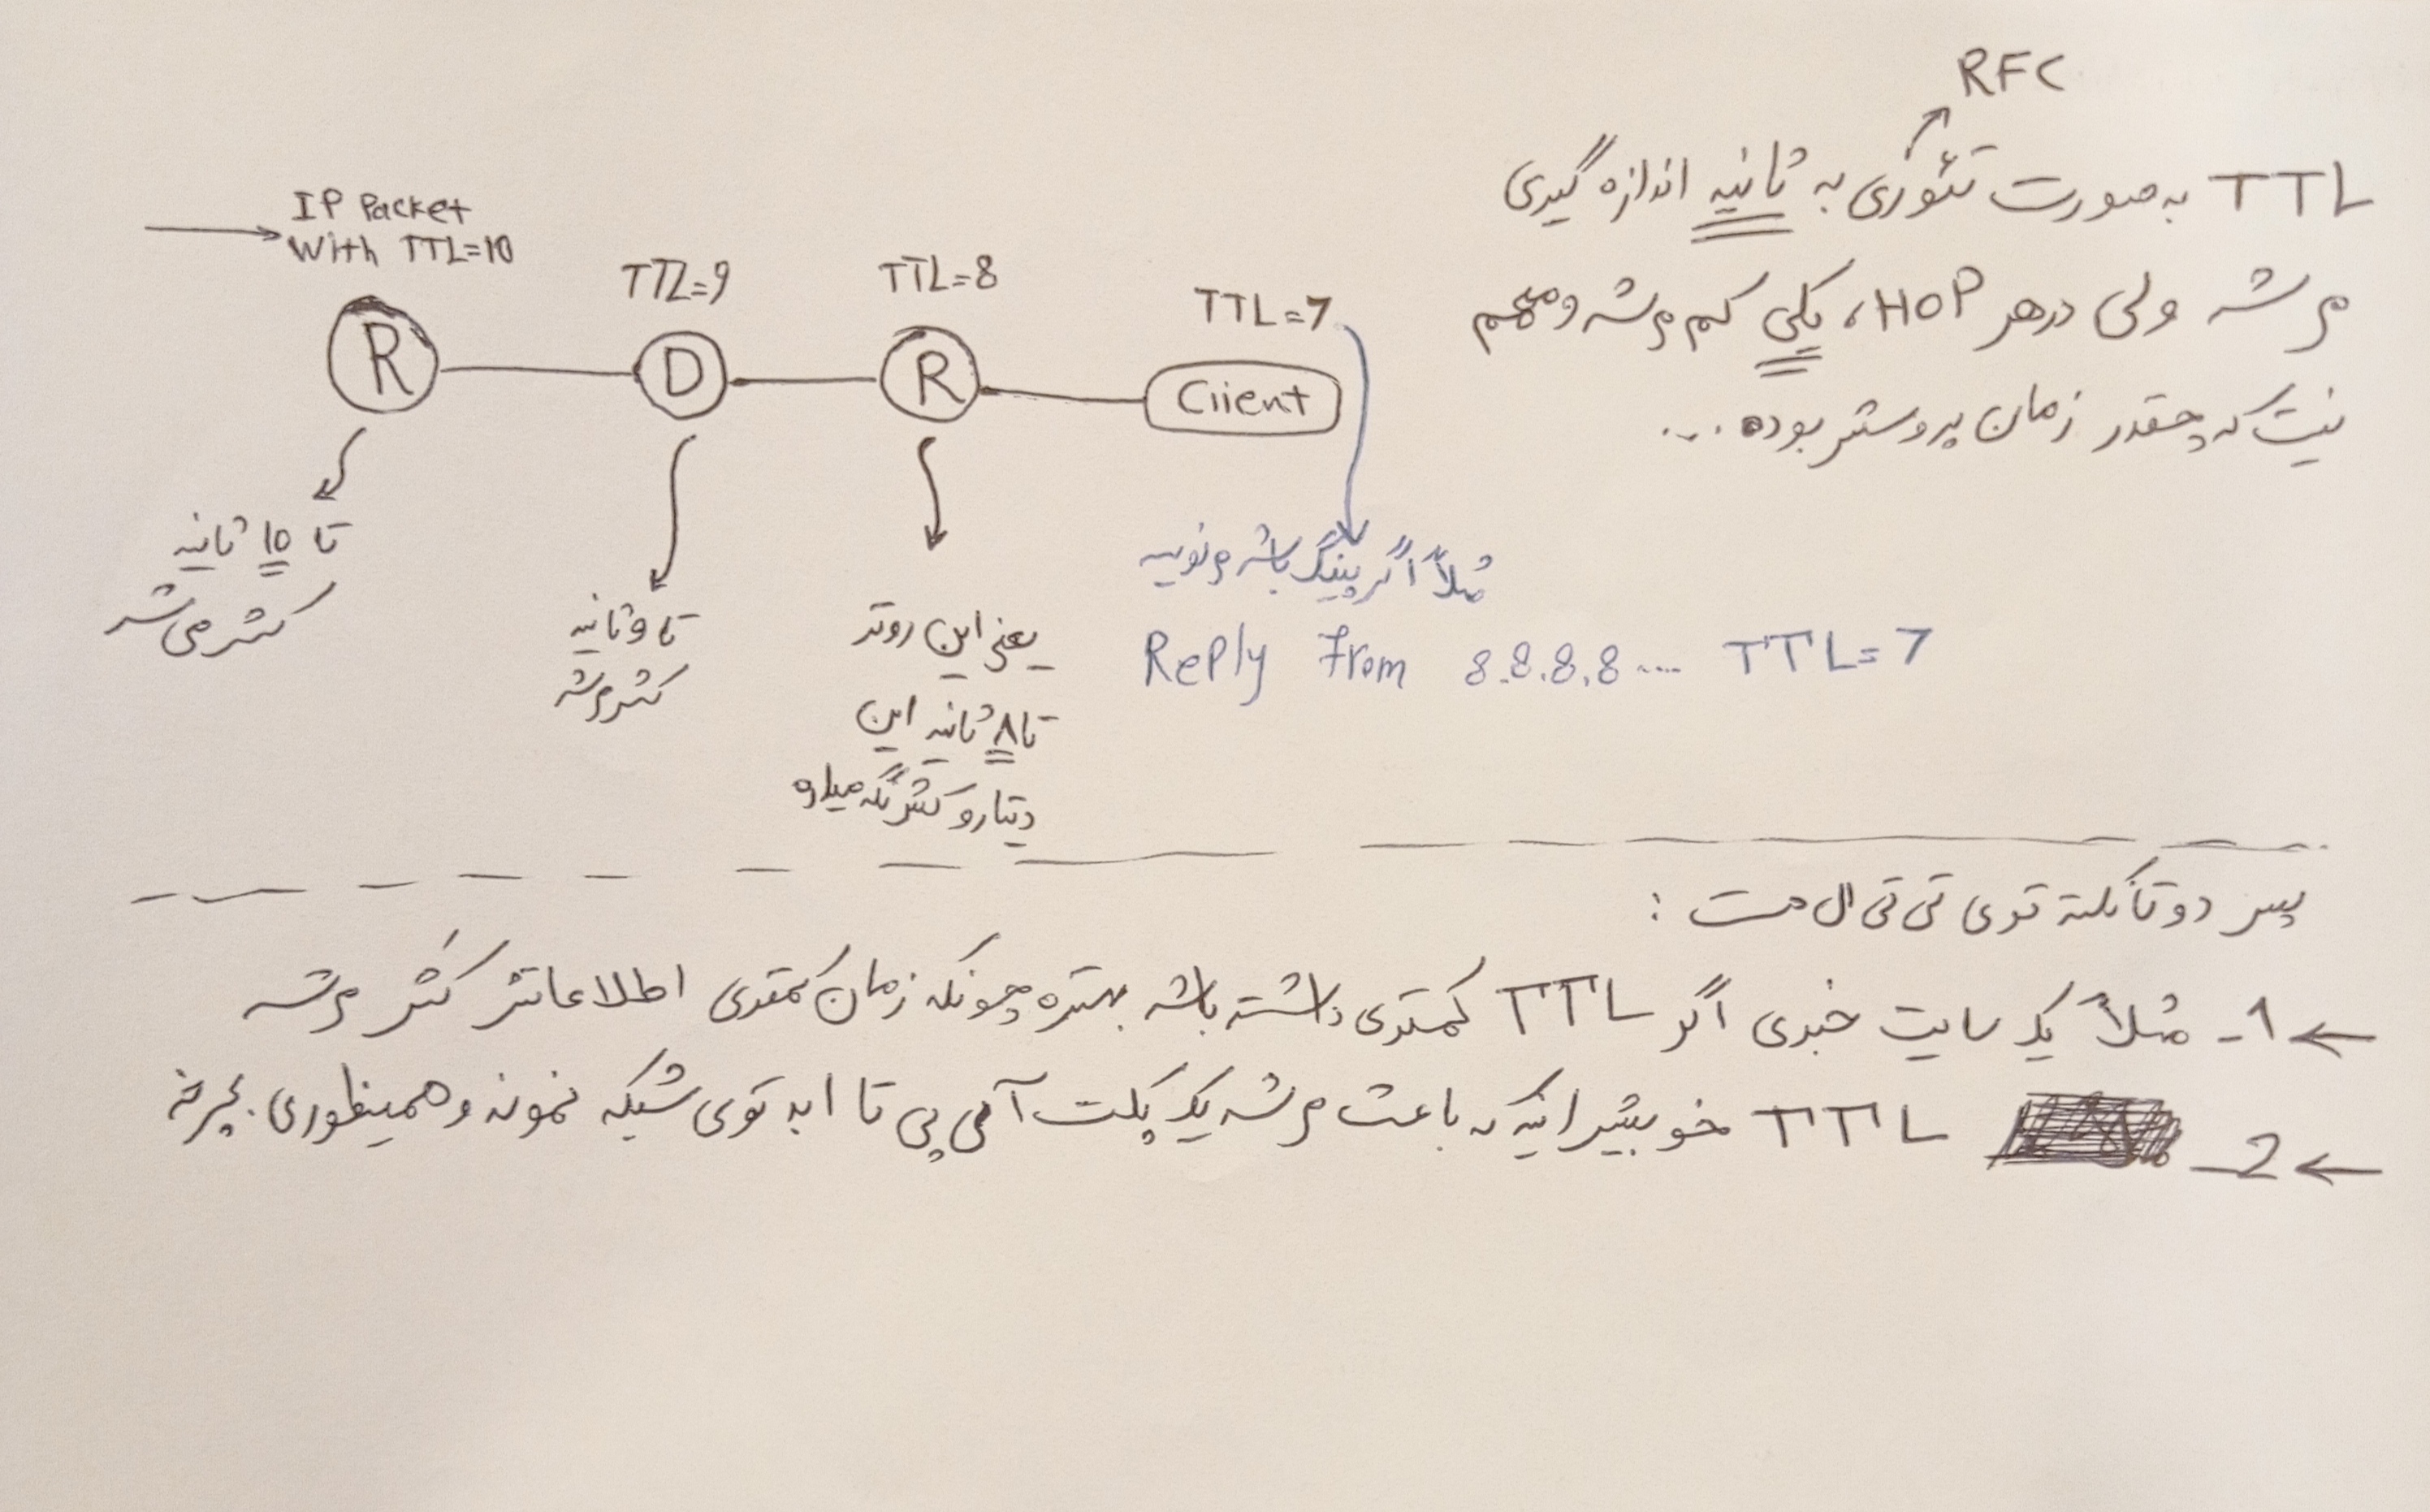 RFC
TTL به صورت تئوری به ثانیه اندازه گیری
میشه ولی در هر HOP، یکی کم میشه و مهم
نیست که چقدر زمان پروسس بوده...
IP Packet
With TTL=10
TTL=9
TTL=8
TTL=7
R
D
R
Client
تا 10 ثانیه
کش می شه
تا 9 ثانیه
کش میشه
یعنی این روتر
تا ۸ ثانیه این
دیتا رو کش نگه میداره
مثلاً اگر پینگ باشه مینویسه
Reply From 8.8.8.8.... TTL=7
پس دو تا نکته توی تی تی ال هست :
← 1- مثلاً یک سایت خبری اگر TTL کمتری داشته باشه بهتره چونکه زمان کمتری اطلاعاتش کش میشه
← 2- TTL خوبیش اینه که باعث میشه یک پکت آی پی تا ابد توی شبکه نمونه و همینطوری بچرخه